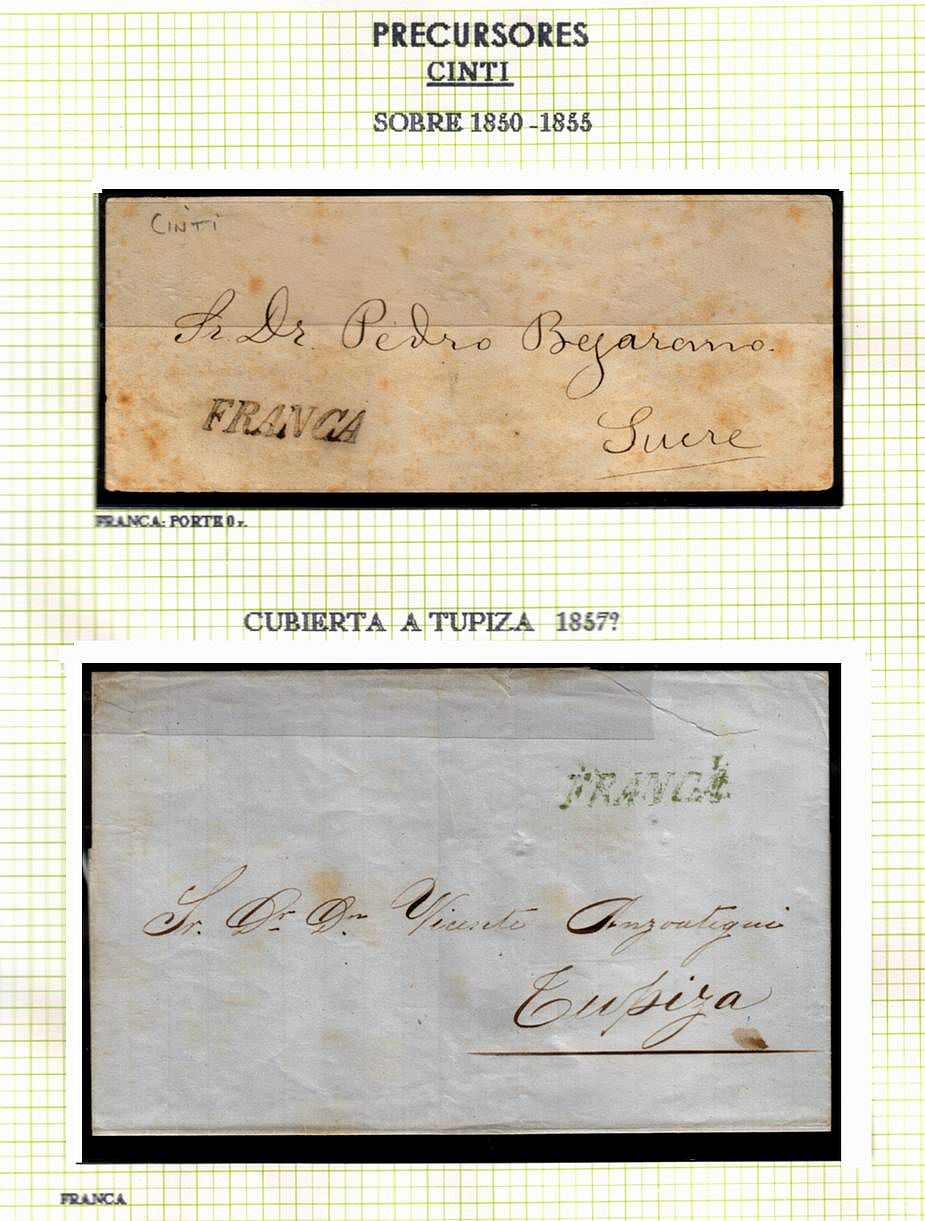 PRECURSORES
CINTI
SOBRE 1850 - 1855
CINTI
Sr. Dr. Pedro Bejarano.
FRANCA
Sucre
FRANCA: PORTE 0 r.
CUBIERTA A TUPIZA 1857?
FRANCA
Sr. Dr. Dn. Vicente Anzoategui
Tupiza
FRANCA